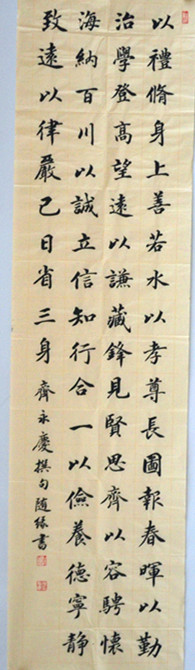 以禮脩身上善若水以孝尊長圖報春暉以勤
治學登高望遠以謙藏鋒見賢思齊以容騁懷
海納百川以誠立信知行合一以儉養德寧靜
致遠以律嚴己日省三身 齊永慶撰句随缘書